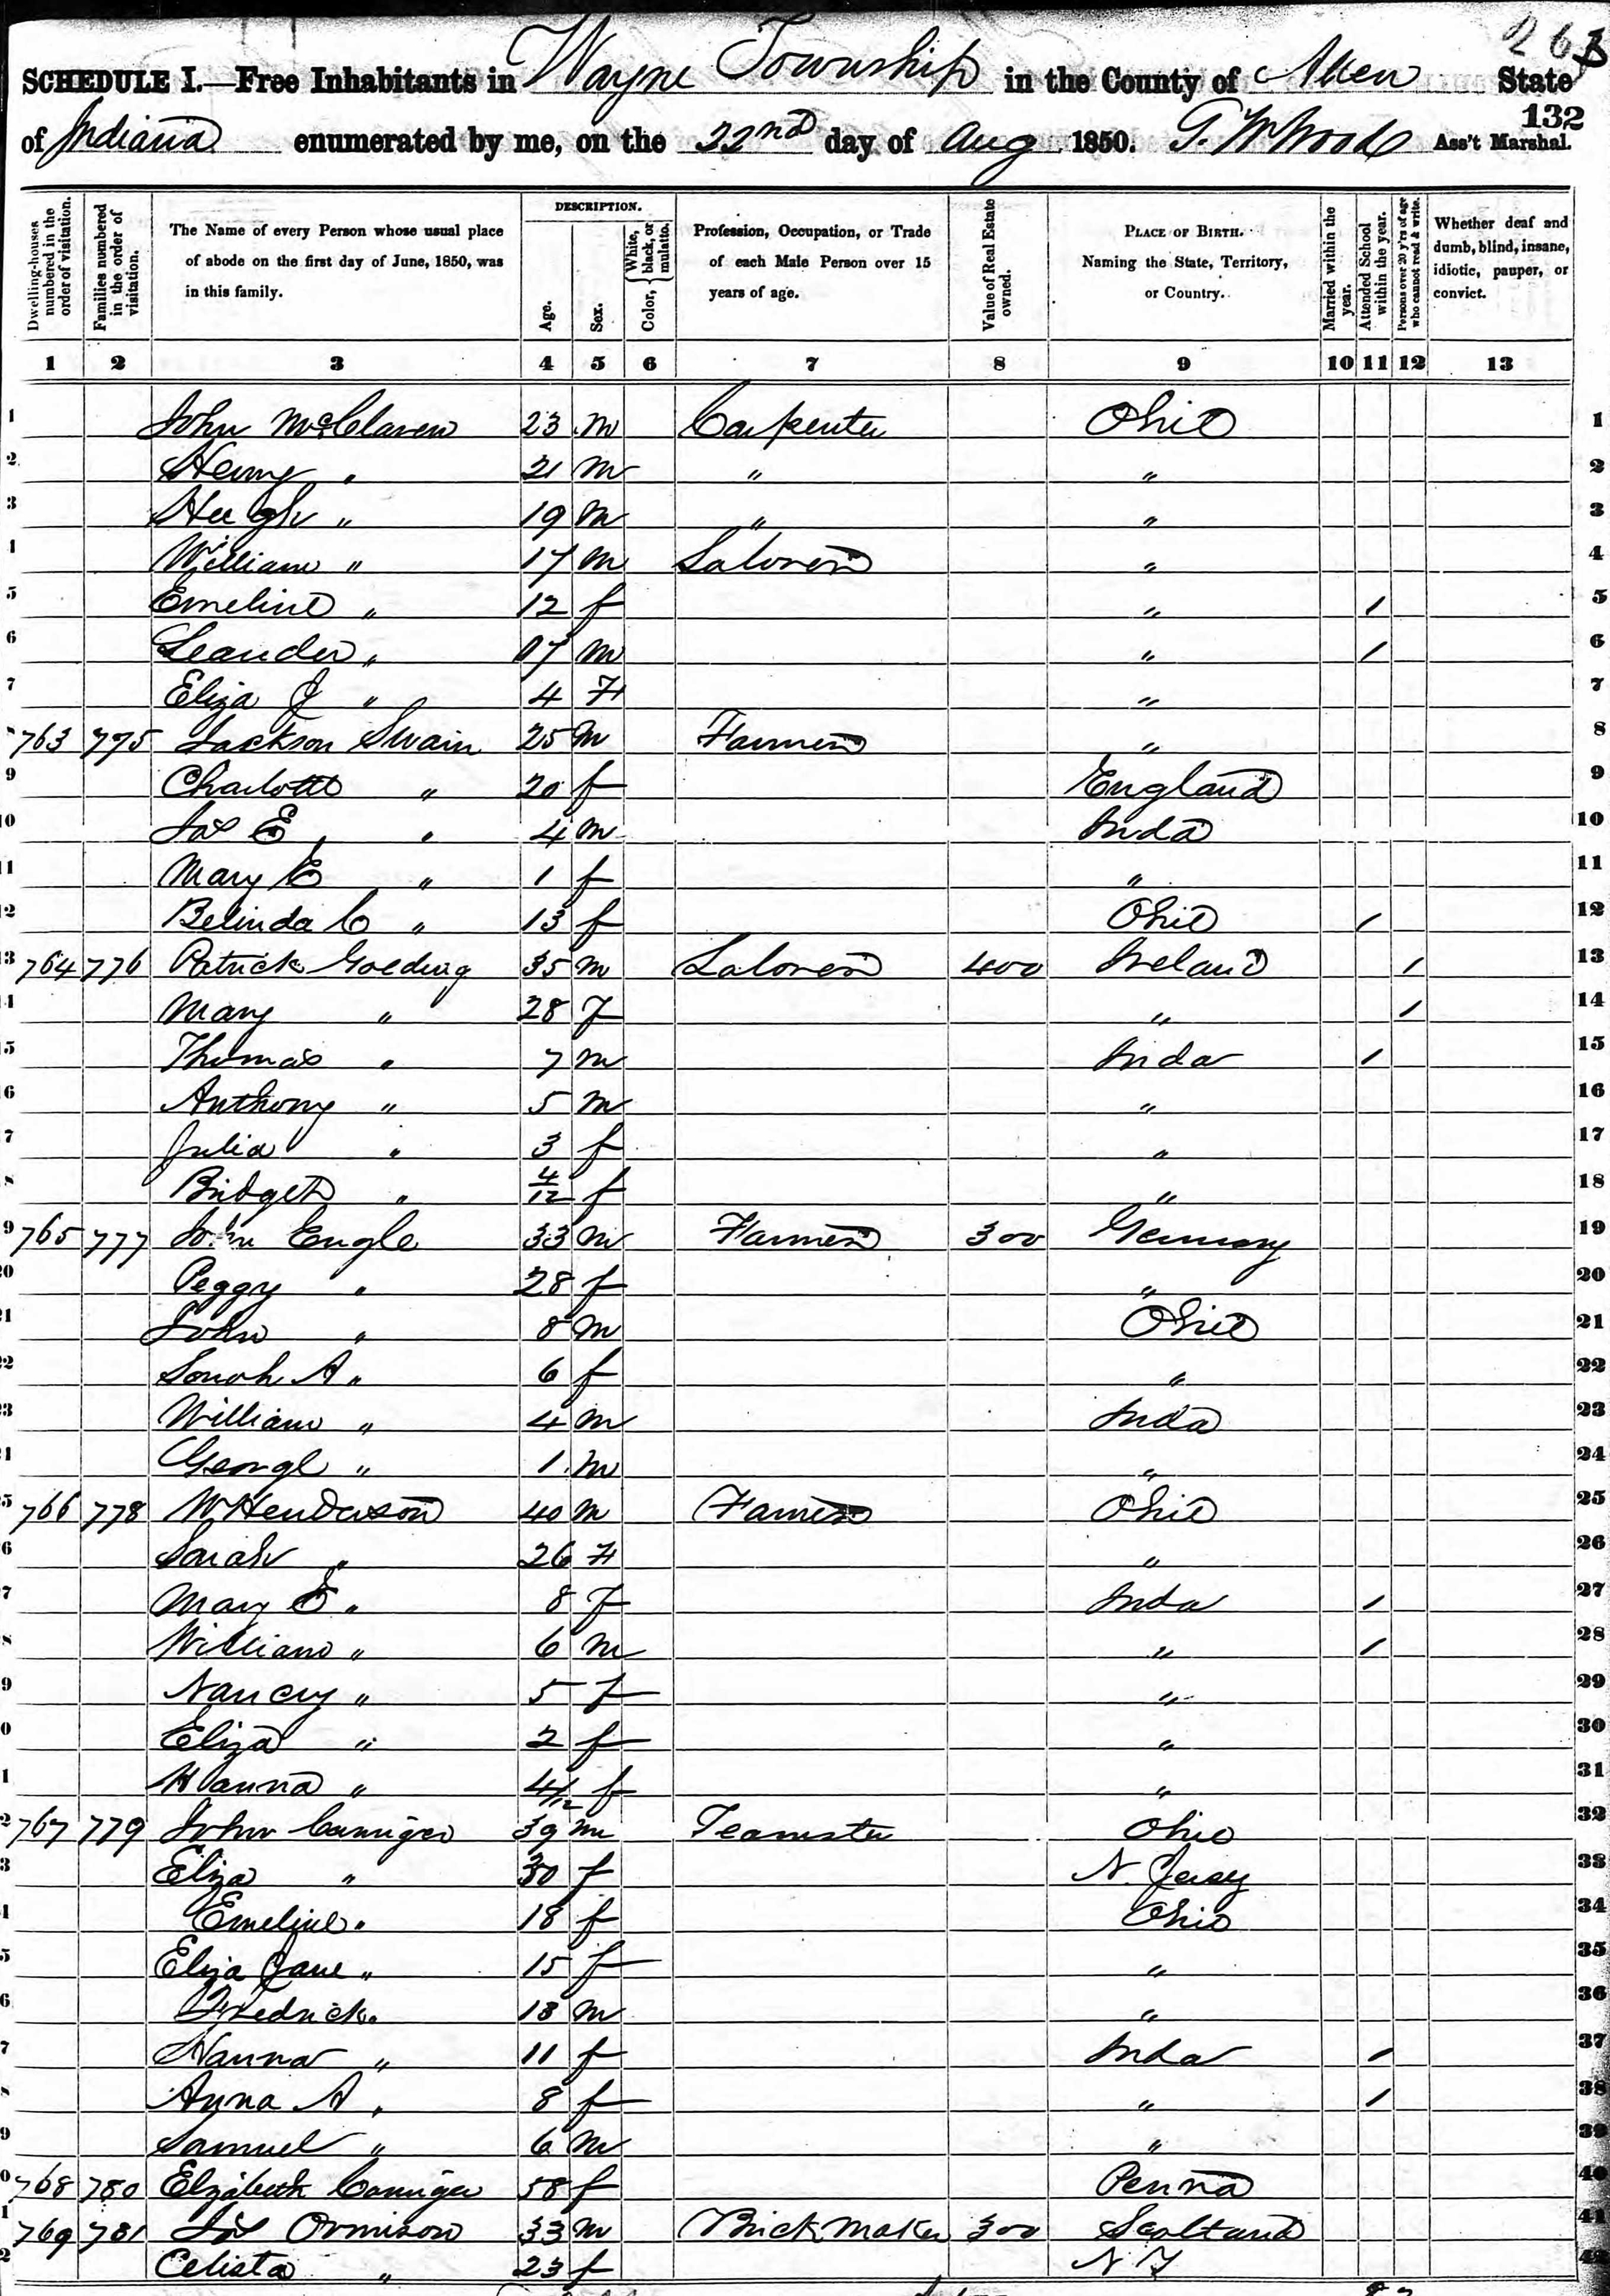 263
SCHEDULE I.—Free Inhabitants in Wayne Township in the County of Allen State
132
of Indiana enumerated by me, on the 22nd day of Aug 1850. Ass't Marshal.
Dwelling-houses numbered in the order of visitation. Families numbered in the order of visitation. The Name of every Person whose usual place of abode on the first day of June, 1850, was in this family. DESCRIPTION. Age. Sex. Color, { White, black, or mulatto. Profession, Occupation, or Trade of each Male Person over 15 years of age. Value of Real Estate owned. PLACE OF BIRTH. Naming the State, Territory, or Country. Married within the year. Attended School within the year. Persons over 20 y'rs of age who cannot read & write. Whether deaf and dumb, blind, insane, idiotic, pauper, or convict.
1 2 3 4 5 6 7 8 9 10 11 12 13
1 John McClaren 23 m Carpenter Ohio 1
2 Henry " 21 m " " 2
3 Hugh " 19 m " " 3
4 William " 17 m Laborer " 4
5 Emeline " 12 f " / 5
6 Leander " 07 m " / 6
7 Eliza J " 4 F " 7
8 763 775 Jackson Swain 25 m Farmer " 8
9 Charlotte " 20 f England 9
10 Jas E " 4 m Inda 10
11 Mary E " 1 f " 11
12 Belinda C " 13 f Ohio / 12
13 764 776 Patrick Golding 35 m Laborer 400 Ireland / 13
14 Mary " 28 f " / 14
15 Thomas " 7 m Inda / 15
16 Anthony " 5 m " 16
17 Julia " 3 f " 17
18 Bridget " 4/12 f " 18
19 765 777 John Engle 33 m Farmer 300 Germany 19
20 Peggy " 28 f " 20
21 John " 8 m Ohio 21
22 Sarah A " 6 f " 22
23 William " 4 m Inda 23
24 George " 1 m " 24
25 766 778 W Henderson 40 m Farmer Ohio 25
26 Sarah " 26 F " 26
27 Mary E " 8 f Inda / 27
28 William " 6 m " / 28
29 Nancy " 5 f " 29
30 Eliza " 2 f " 30
31 Hanna " 4/12 f " 31
32 767 779 John 39 m Teamster Ohio 32
33 Eliza " 30 f N. Jersey 33
34 Emeline " 18 f Ohio 34
35 Eliza Jane " 15 f " 35
36 Fredrick " 13 m " 36
37 Hanna " 11 f Inda / 37
38 Anna A " 8 f " / 38
39 Samuel " 6 m " 39
40 768 780 Elizabeth 58 f Penna 40
41 769 781 Jas Ormison 33 m Brick Maker 300 Scotland 41
42 Celista " 23 f N Y 42